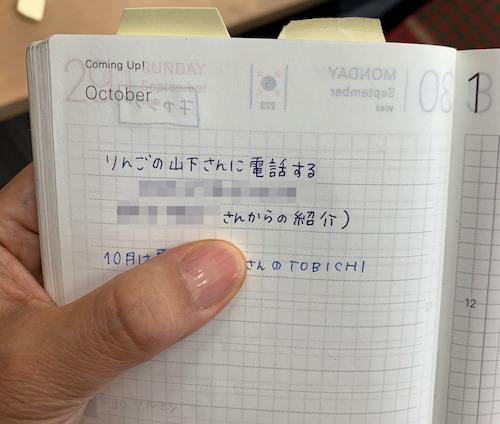 Coming Up!
October
りんごの山下さんに電話する
さんからの紹介)
10月は
さんのTOBICHI
12
1
29 SUNDAY
September
273
MONDAY
September
W40
30